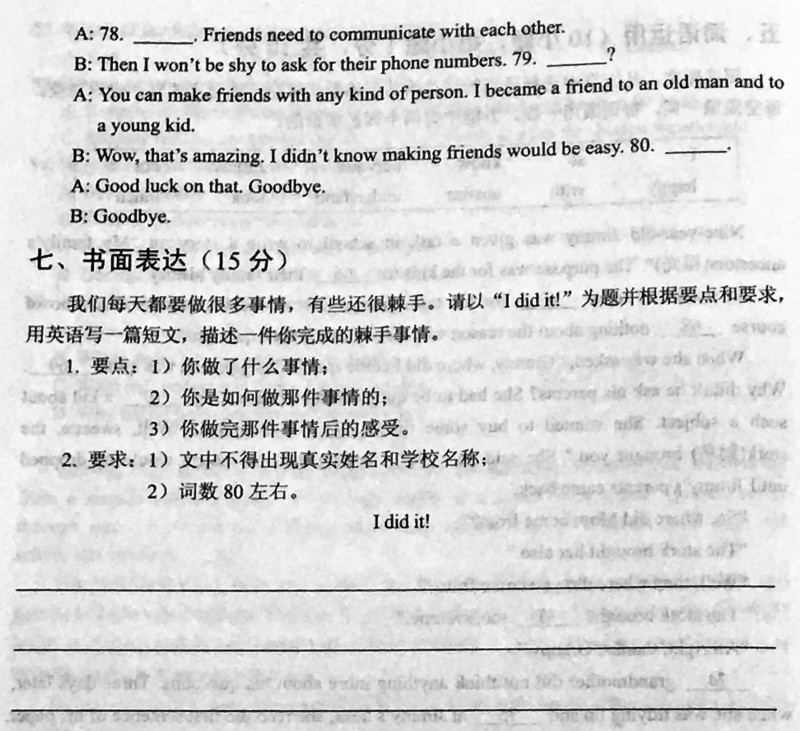 A: 78. ______. Friends need to communicate with each other.
B: Then I won't be shy to ask for their phone numbers. 79. ______?
A: You can make friends with any kind of person. I became a friend to an old man and to
a young kid.
B: Wow, that's amazing. I didn't know making friends would be easy. 80. ______.
A: Good luck on that. Goodbye.
B: Goodbye.
七、书面表达（15 分）
我们每天都要做很多事情，有些还很棘手。请以“I did it!”为题并根据要点和要求，
用英语写一篇短文，描述一件你完成的棘手事情。
1. 要点：1）你做了什么事情；
2）你是如何做那件事情的；
3）你做完那件事情后的感受。
2. 要求：1）文中不得出现真实姓名和学校名称；
2）词数 80 左右。
I did it!